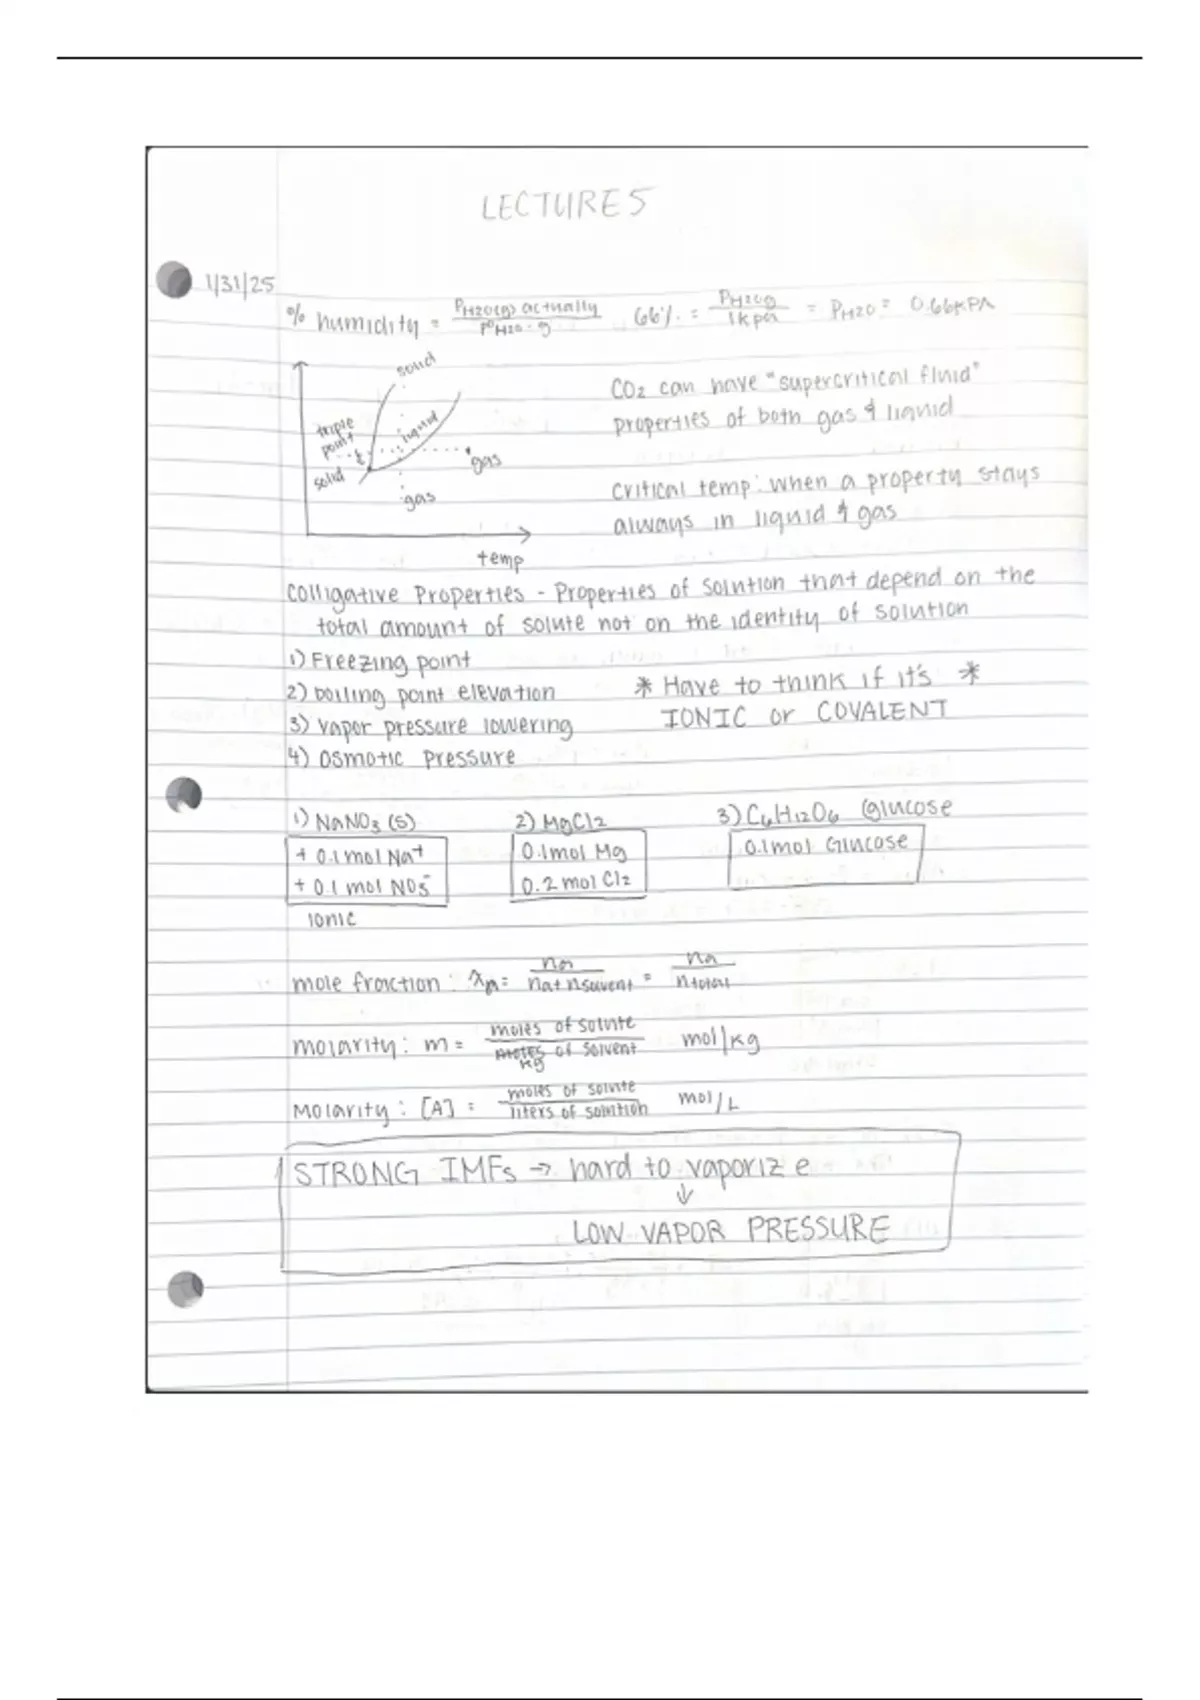 LECTURE 5
1/31/25
% humidity = PH2O(g) actually / P°H2O·g    66% = PH2Og / 1kpa = PH2O = 0.66KPA
solid
triple point
liquid
solid
gas
gas
temp
CO2 can have "supercritical fluid"
properties of both gas & liquid
critical temp: when a property stays
always in liquid & gas
Colligative Properties - Properties of solution that depend on the
total amount of solute not on the identity of solution
1) Freezing point
2) boiling point elevation
3) vapor pressure lowering
4) Osmotic pressure
* Have to think if it's *
IONIC or COVALENT
1) NaNO3 (s)    2) MgCl2    3) C6H12O6 Glucose
+ 0.1 mol Na+    0.1mol Mg    0.1mol Glucose
+ 0.1 mol NO3-    0.2 mol Cl2
Ionic
mole fraction: XA = na / na + nsolvent = na / ntotal
molarity: m = moles of solute / moles kg of solvent    mol/kg
Molarity: [A] = moles of solute / liters of solution    mol/L
STRONG IMFs → hard to vaporize
↓
LOW VAPOR PRESSURE